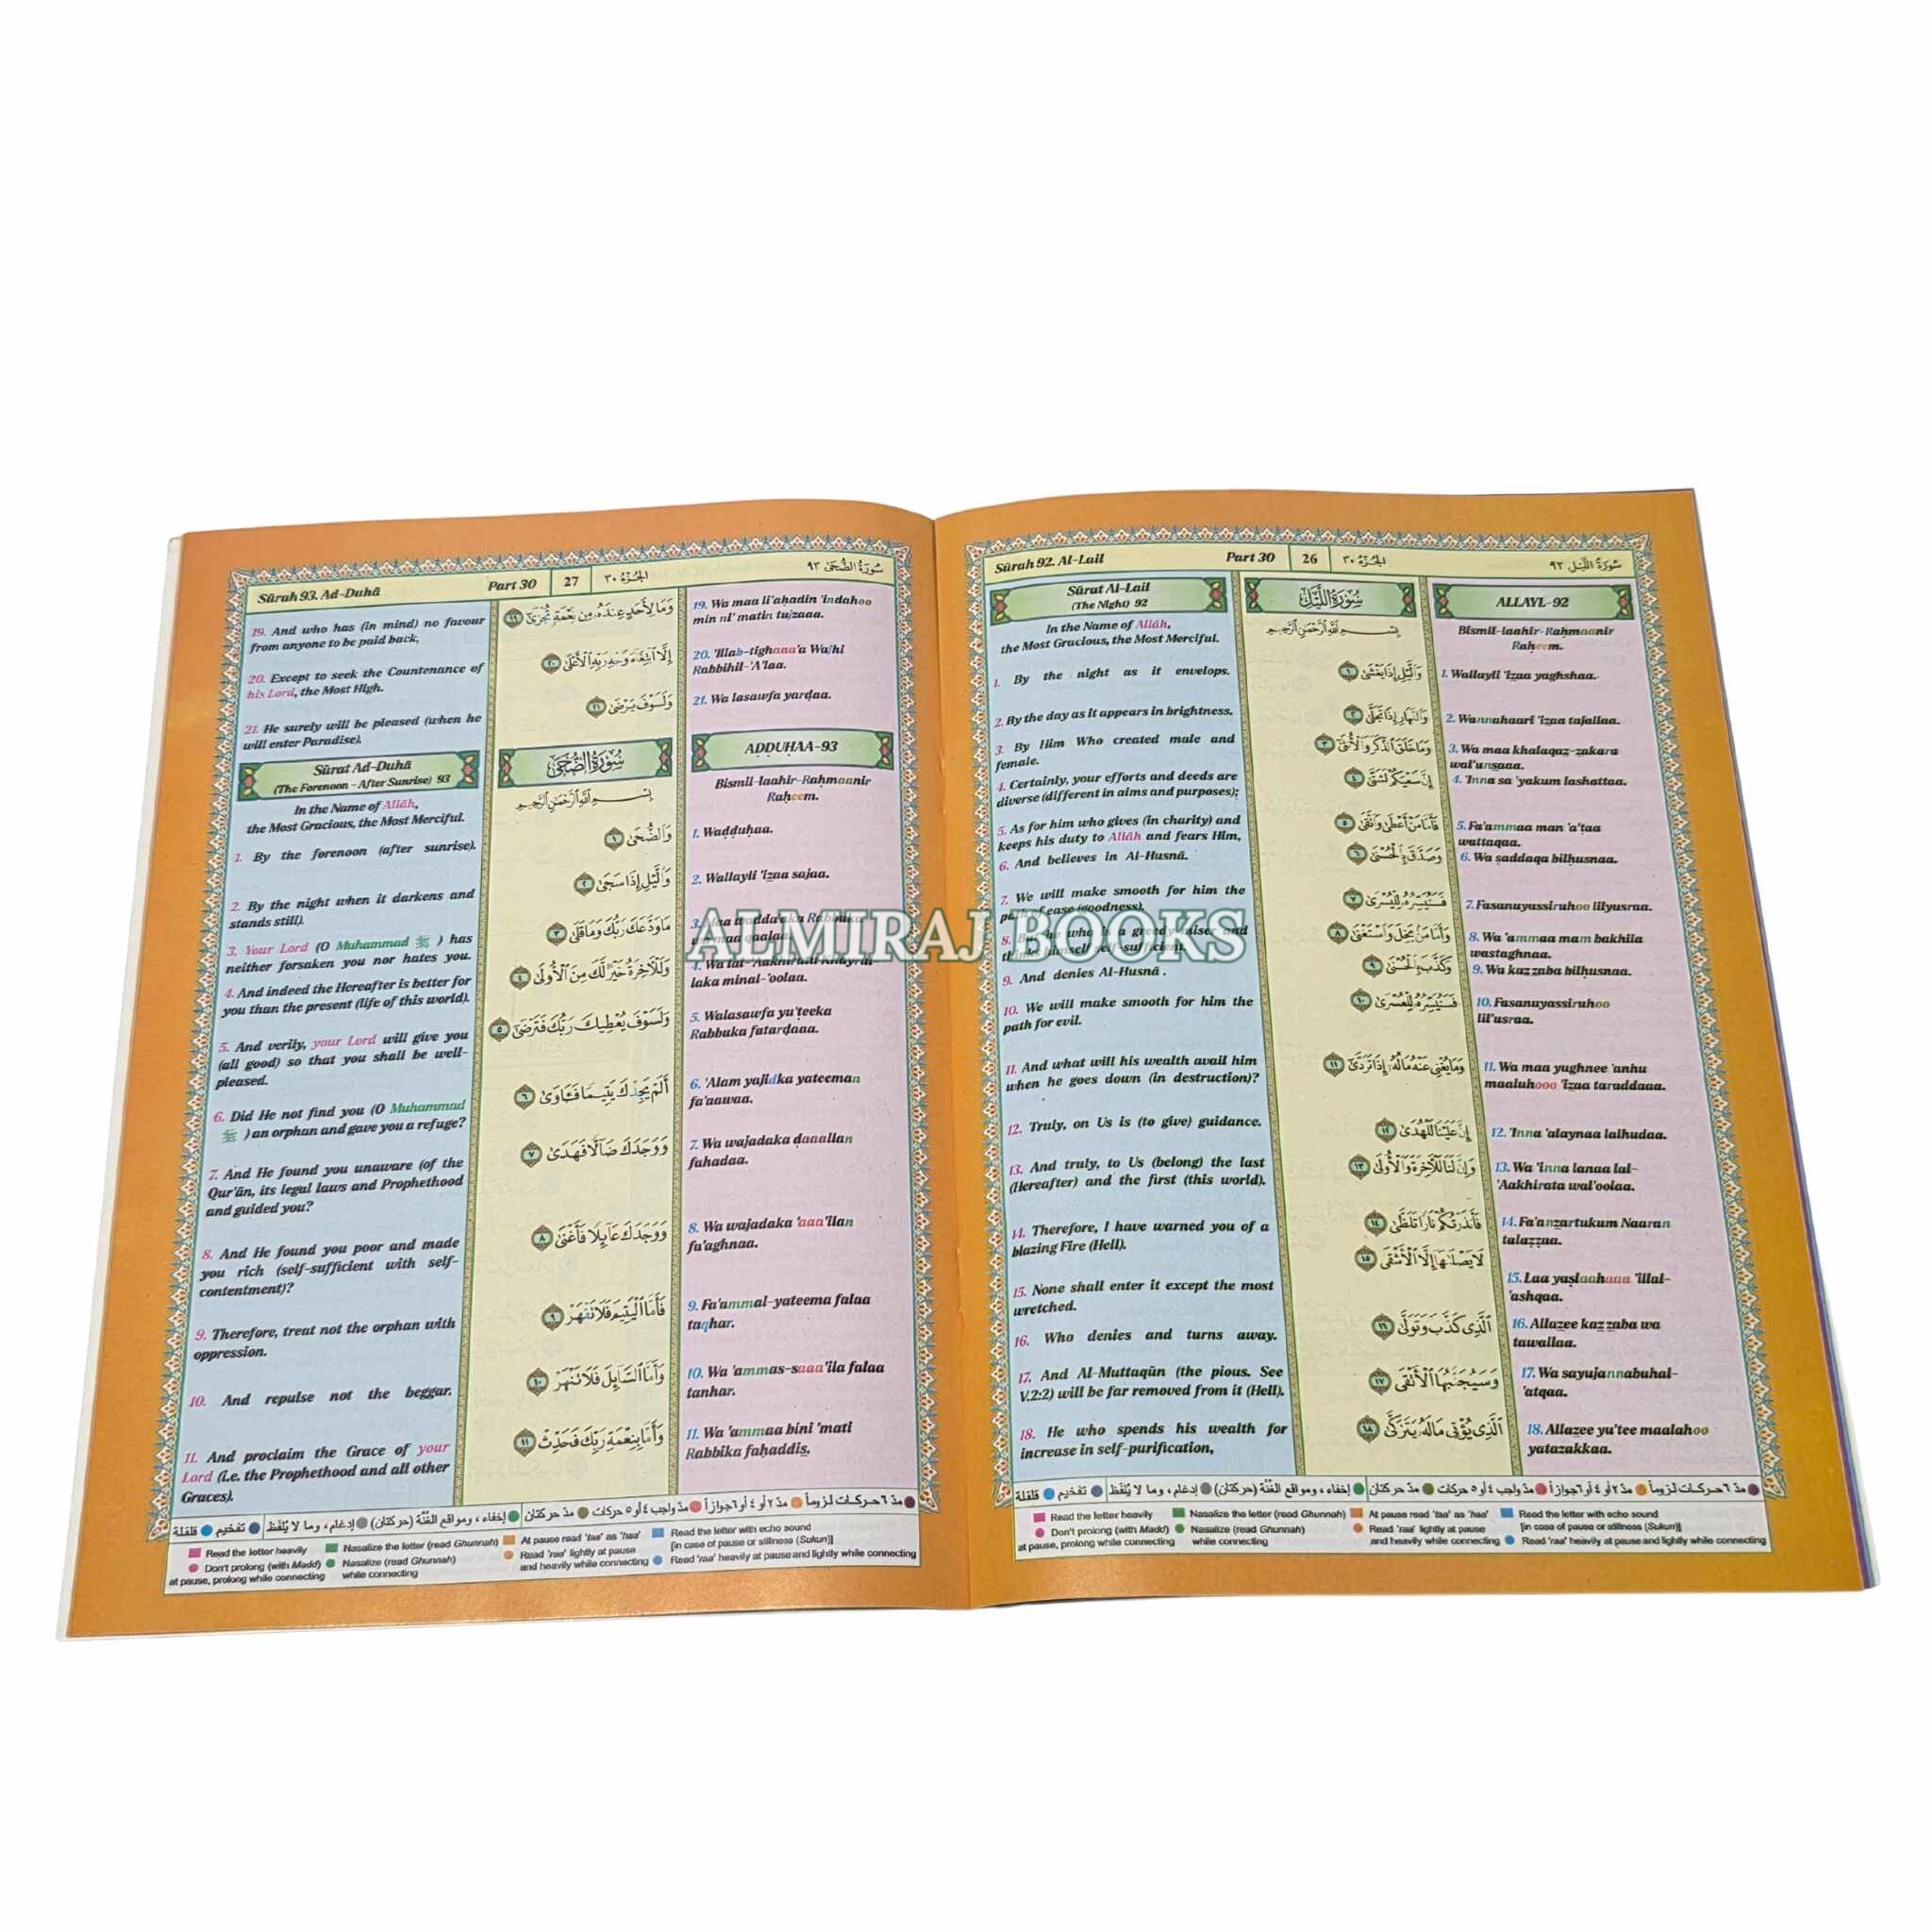 Sūrah 92. Al-Lail
Part 30
26
الجزء ٣٠
سورة الليل ٩٢
Sūrat Al-Lail
(The Night) 92
In the Name of Allāh,
the Most Gracious, the Most Merciful.
1. By the night as it envelops.
2. By the day as it appears in brightness.
3. By Him Who created male and
female.
4. Certainly, your efforts and deeds are
diverse (different in aims and purposes);
5. As for him who gives (in charity) and
keeps his duty to Allāh and fears Him,
6. And believes in Al-Husnā.
7. We will make smooth for him the
path of ease (goodness).
8. who greedy miser and
himself self-sufficient.
9. And denies Al-Husnā.
10. We will make smooth for him the
path for evil.
11. And what will his wealth avail him
when he goes down (in destruction)?
12. Truly, on Us is (to give) guidance.
13. And truly, to Us (belong) the last
(Hereafter) and the first (this world).
14. Therefore, I have warned you of a
blazing Fire (Hell).
15. None shall enter it except the most
wretched.
16. Who denies and turns away.
17. And Al-Muttaqūn (the pious. See
V.2:2) will be far removed from it (Hell).
18. He who spends his wealth for
increase in self-purification,
سُورَةُ اللَّيْلِ
بِسْمِ ٱللَّهِ ٱلرَّحْمَٰنِ ٱلرَّحِيمِ
وَٱلَّيْلِ إِذَا يَغْشَىٰ ١
وَٱلنَّهَارِ إِذَا تَجَلَّىٰ ٢
وَمَا خَلَقَ ٱلذَّكَرَ وَٱلْأُنثَىٰ ٣
إِنَّ سَعْيَكُمْ لَشَتَّىٰ ٤
فَأَمَّا مَنْ أَعْطَىٰ وَٱتَّقَىٰ ٥
وَصَدَّقَ بِٱلْحُسْنَىٰ ٦
فَسَنُيَسِّرُهُۥ لِلْيُسْرَىٰ ٧
وَأَمَّا مَنۢ بَخِلَ وَٱسْتَغْنَىٰ ٨
وَكَذَّبَ بِٱلْحُسْنَىٰ ٩
فَسَنُيَسِّرُهُۥ لِلْعُسْرَىٰ ١٠
وَمَا يُغْنِى عَنْهُ مَالُهُۥٓ إِذَا تَرَدَّىٰٓ ١١
إِنَّ عَلَيْنَا لَلْهُدَىٰ ١٢
وَإِنَّ لَنَا لَلْءَاخِرَةَ وَٱلْأُولَىٰ ١٣
فَأَنذَرْتُكُمْ نَارًا تَلَظَّىٰ ١٤
لَا يَصْلَىٰهَآ إِلَّا ٱلْأَشْقَى ١٥
ٱلَّذِى كَذَّبَ وَتَوَلَّىٰ ١٦
وَسَيُجَنَّبُهَا ٱلْأَتْقَى ١٧
ٱلَّذِى يُؤْتِى مَالَهُۥ يَتَزَكَّىٰ ١٨
ALLAYL-92
Bismil-laahir-Raḥmaanir
Raḥeem.
1. Wallayli 'izaa yaghshaa.
2. Wannahaari 'izaa tajallaa.
3. Wa maa khalaqaz-zakara
wal'unsaaa.
4. 'Inna sa 'yakum lashattaa.
5. Fa'ammaa man 'a'ṭaa
wattaqaa.
6. Wa ṣaddaqa bilḥusnaa.
7. Fasanuyassiruhoo lilyusraa.
8. Wa 'ammaa mam bakhila
wastaghnaa.
9. Wa kazzaba bilḥusnaa.
10. Fasanuyassiruhoo
lil'usraa.
11. Wa maa yughnee 'anhu
maaluhooo 'izaa taraddaaa.
12. 'Inna 'alaynaa lalhudaa.
13. Wa 'inna lanaa lal-
'Aakhirata wal'oolaa.
14. Fa'anzartukum Naaran
talaẓẓaa.
15. Laa yaṣlaahaaa 'illal-
'ashqaa.
16. Allazee kazzaba wa
tawallaa.
17. Wa sayujannabuhal-
'atqaa.
18. Allazee yu'tee maalahoo
yatazakkaa.
مدّ ٦ حركات لزوماً مدّ ٢ أو ٤ أو ٦ جوازاً مدّ واجب ٤ أو ٥ حركات مدّ حركتان إخفاء، ومواقع الغُنَّة (حركتان) إدغام، وما لا يُلفَظ تفخيم قلقلة
Read the letter heavily Nasalize the letter (read Ghunnah) At pause read 'taa' as 'haa' Read the letter with echo sound
Don't prolong (with Madd) Nasalize (read Ghunnah) Read 'raa' lightly at pause [in case of pause or stillness (Sukun)]
at pause, prolong while connecting while connecting and heavily while connecting Read 'raa' heavily at pause and lightly while connecting
Sūrah 93. Ad-Duhā
Part 30
27
الجزء ٣٠
سورة الضحى ٩٣
19. And who has (in mind) no favour
from anyone to be paid back,
20. Except to seek the Countenance of
his Lord, the Most High.
21. He surely will be pleased (when he
will enter Paradise).
Sūrat Ad-Duhā
(The Forenoon - After Sunrise) 93
In the Name of Allāh,
the Most Gracious, the Most Merciful.
1. By the forenoon (after sunrise).
2. By the night when it darkens and
stands still).
3. Your Lord (O Muhammad ﷺ ) has
neither forsaken you nor hates you.
4. And indeed the Hereafter is better for
you than the present (life of this world).
5. And verily, your Lord will give you
(all good) so that you shall be well-
pleased.
6. Did He not find you (O Muhammad
ﷺ ) an orphan and gave you a refuge?
7. And He found you unaware (of the
Qur'ān, its legal laws and Prophethood
and guided you?
8. And He found you poor and made
you rich (self-sufficient with self-
contentment)?
9. Therefore, treat not the orphan with
oppression.
10. And repulse not the beggar.
11. And proclaim the Grace of your
Lord (i.e. the Prophethood and all other
Graces).
وَمَا لِأَحَدٍ عِندَهُۥ مِن نِّعْمَةٍ تُجْزَىٰٓ ١٩
إِلَّا ٱبْتِغَآءَ وَجْهِ رَبِّهِ ٱلْأَعْلَىٰ ٢٠
وَلَسَوْفَ يَرْضَىٰ ٢١
سُورَةُ الضُّحَىٰ
بِسْمِ ٱللَّهِ ٱلرَّحْمَٰنِ ٱلرَّحِيمِ
وَٱلضُّحَىٰ ١
وَٱلَّيْلِ إِذَا سَجَىٰ ٢
مَا وَدَّعَكَ رَبُّكَ وَمَا قَلَىٰ ٣
وَلَلْءَاخِرَةُ خَيْرٌ لَّكَ مِنَ ٱلْأُولَىٰ ٤
وَلَسَوْفَ يُعْطِيكَ رَبُّكَ فَتَرْضَىٰٓ ٥
أَلَمْ يَجِدْكَ يَتِيمًا فَـَٔاوَىٰ ٦
وَوَجَدَكَ ضَآلًّا فَهَدَىٰ ٧
وَوَجَدَكَ عَآئِلًا فَأَغْنَىٰ ٨
فَأَمَّا ٱلْيَتِيمَ فَلَا تَقْهَرْ ٩
وَأَمَّا ٱلسَّآئِلَ فَلَا تَنْهَرْ ١٠
وَأَمَّا بِنِعْمَةِ رَبِّكَ فَحَدِّثْ ١١
19. Wa maa li'aḥadin 'indahoo
min ni' matin tujzaaa.
20. 'Illab-tighaaa'a Wajhi
Rabbihil-'A'laa.
21. Wa lasawfa yarḍaa.
ADDUHAA-93
Bismil-laahir-Raḥmaanir
Raḥeem.
1. Waḍḍuḥaa.
2. Wallayli 'izaa sajaa.
3. wadda'aka Rabbuka
maa qalaa.
4. Wa lal-'Aakhiratu khayrul
laka minal-'oolaa.
5. Walasawfa yu'ṭeeka
Rabbuka fatarḍaaa.
6. 'Alam yajidka yateeman
fa'aawaa.
7. Wa wajadaka ḍaaallan
fahadaa.
8. Wa wajadaka 'aaa'ilan
fa'aghnaa.
9. Fa'ammal-yateema falaa
taqhar.
10. Wa 'ammas-saaa'ila falaa
tanhar.
11. Wa 'ammaa bini 'mati
Rabbika faḥaddis.
مدّ ٦ حركات لزوماً مدّ ٢ أو ٤ أو ٦ جوازاً مدّ واجب ٤ أو ٥ حركات مدّ حركتان إخفاء، ومواقع الغُنَّة (حركتان) إدغام، وما لا يُلفَظ تفخيم قلقلة
Read the letter heavily Nasalize the letter (read Ghunnah) At pause read 'taa' as 'haa' Read the letter with echo sound
Don't prolong (with Madd) Nasalize (read Ghunnah) Read 'raa' lightly at pause [in case of pause or stillness (Sukun)]
at pause, prolong while connecting while connecting and heavily while connecting Read 'raa' heavily at pause and lightly while connecting
ALMIRAJ BOOKS